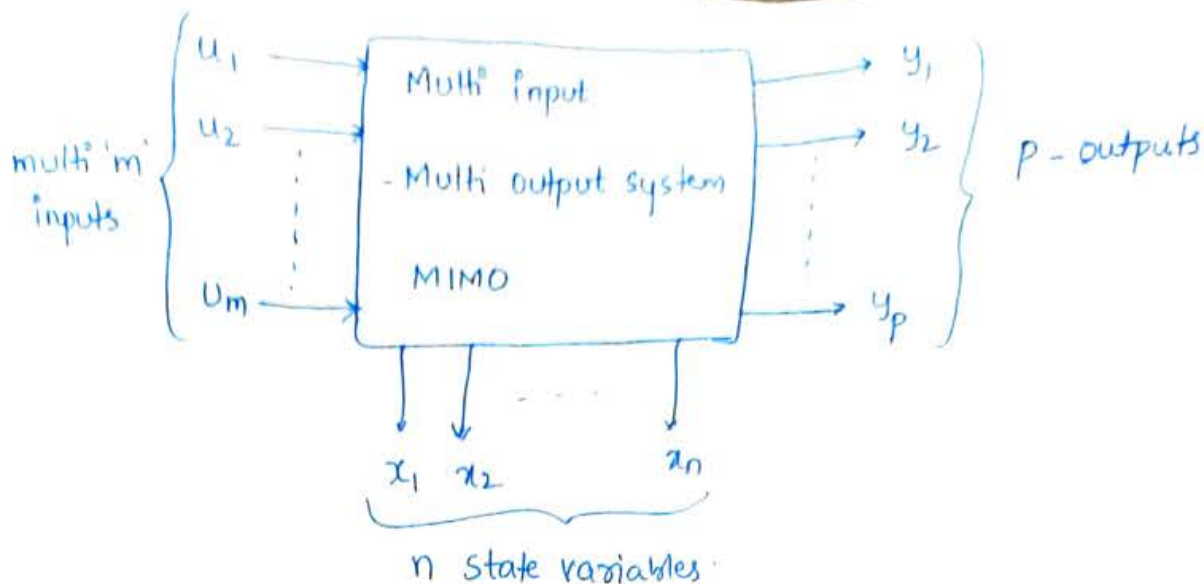 multi 'm'
inputs
u1
u2
Um
Multi input
- Multi output system
MIMO
y1
y2
yp
p - outputs
x1 x2 xn
n state variables.